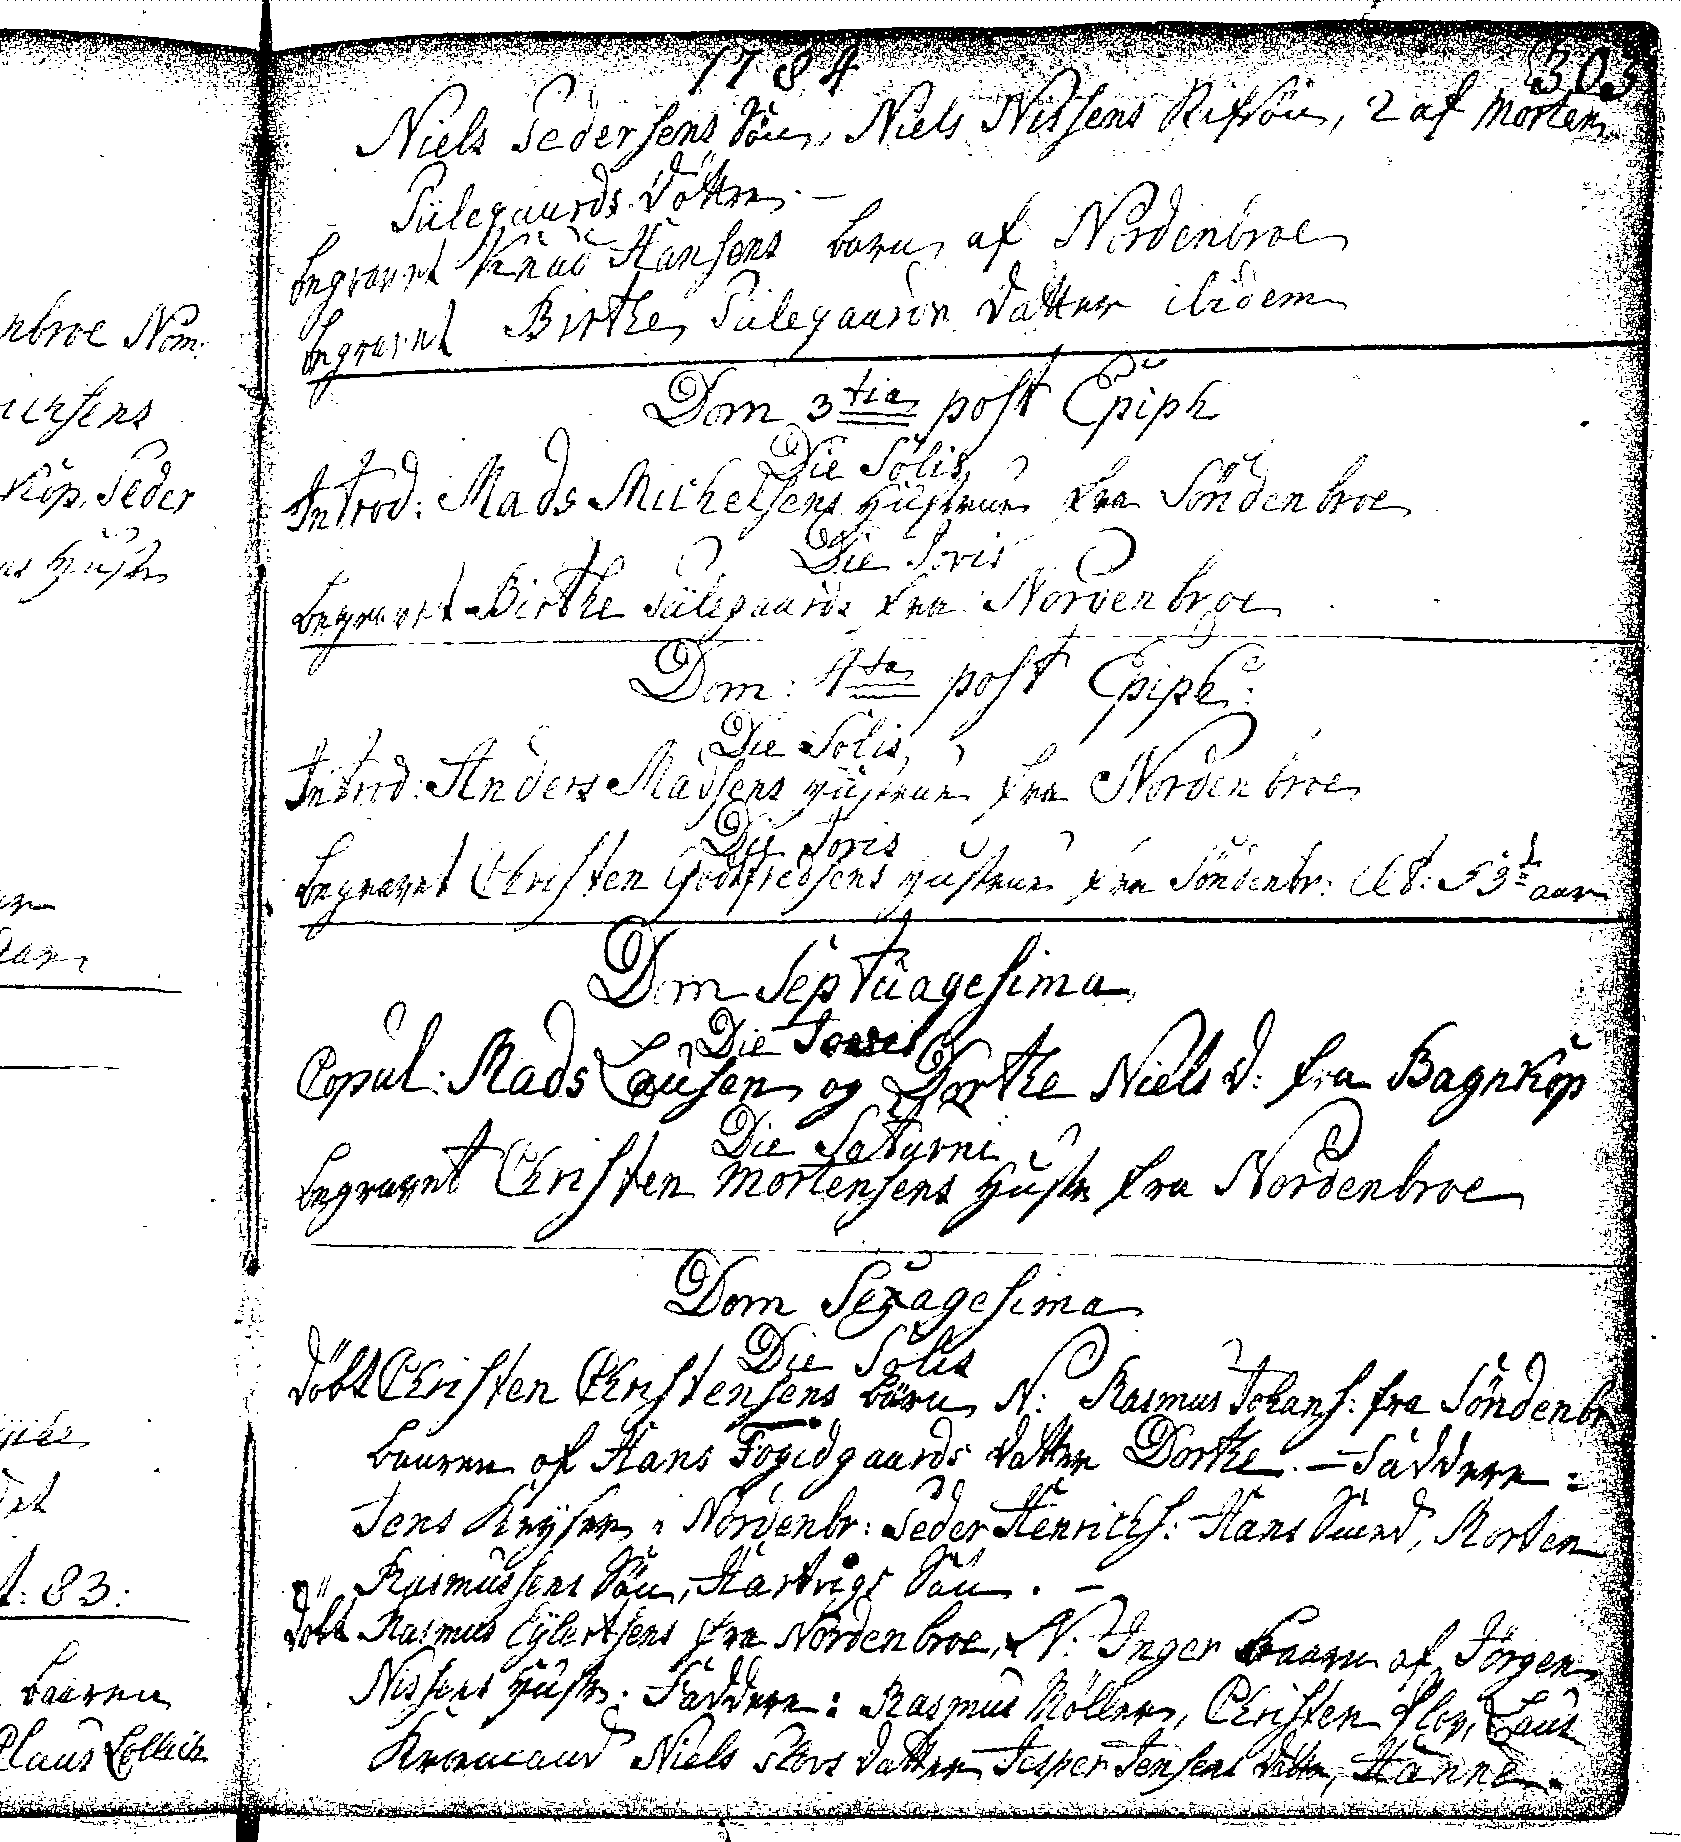 nbroe Nom:
Kiöp. Peder
ns Hustr
t: 83:
baaren
Claus Collich
1784 303
Niels Pedersens Sön, Niels Nilsens Stifsön, 2 af Morten
Pülegaards Döttre. –
begravet Knud Hansens barn af Nordenbroe
begravet Birthe Pülegaards datter ibidem
Dom 3tia post Epiph
Die Solis
Introd: Mads Michelsens Hustrue fra Söndenbroe
Die Jovis
begravet Birthe Pülegaards fra Nordenbroe
Dom: 4ta post Epiph:
Die Solis
Introd: Anders Madsens Hustrue fra Nordenbroe
Die Jovis
begravet Christen Godtfredsens Hustrue fra Söndenbr: Æt: 53 aar
Dom Septuagesima
Die Jovis
Copul: Mads Lausen og Dorthe Niels D: fra Bagnkop
Die Saturni
begravet Christen Mortensens Hustr fra Nordenbroe
Dom Sexagesima
Die Solis
döbt Christen Christensens barn N: Rasmus Johans: fra Söndenbr
baaren af Hans Fogedgaards datter Dorthe. – Faddere:
Jens Keyser i Nordenbr: Peder Henrichs: Hans Smed, Morten
Rasmussens Sön, Hartvigs Sön. –
döbt Rasmus Eylertsens fra Nordenbroe, N: Inger baaren af Jörgen
Nissens Hustr: Faddere: Rasmus Möller, Christen Flor, Laus
Kroemand Niels Skovs datter Jesper Jensens datter, Hanne.